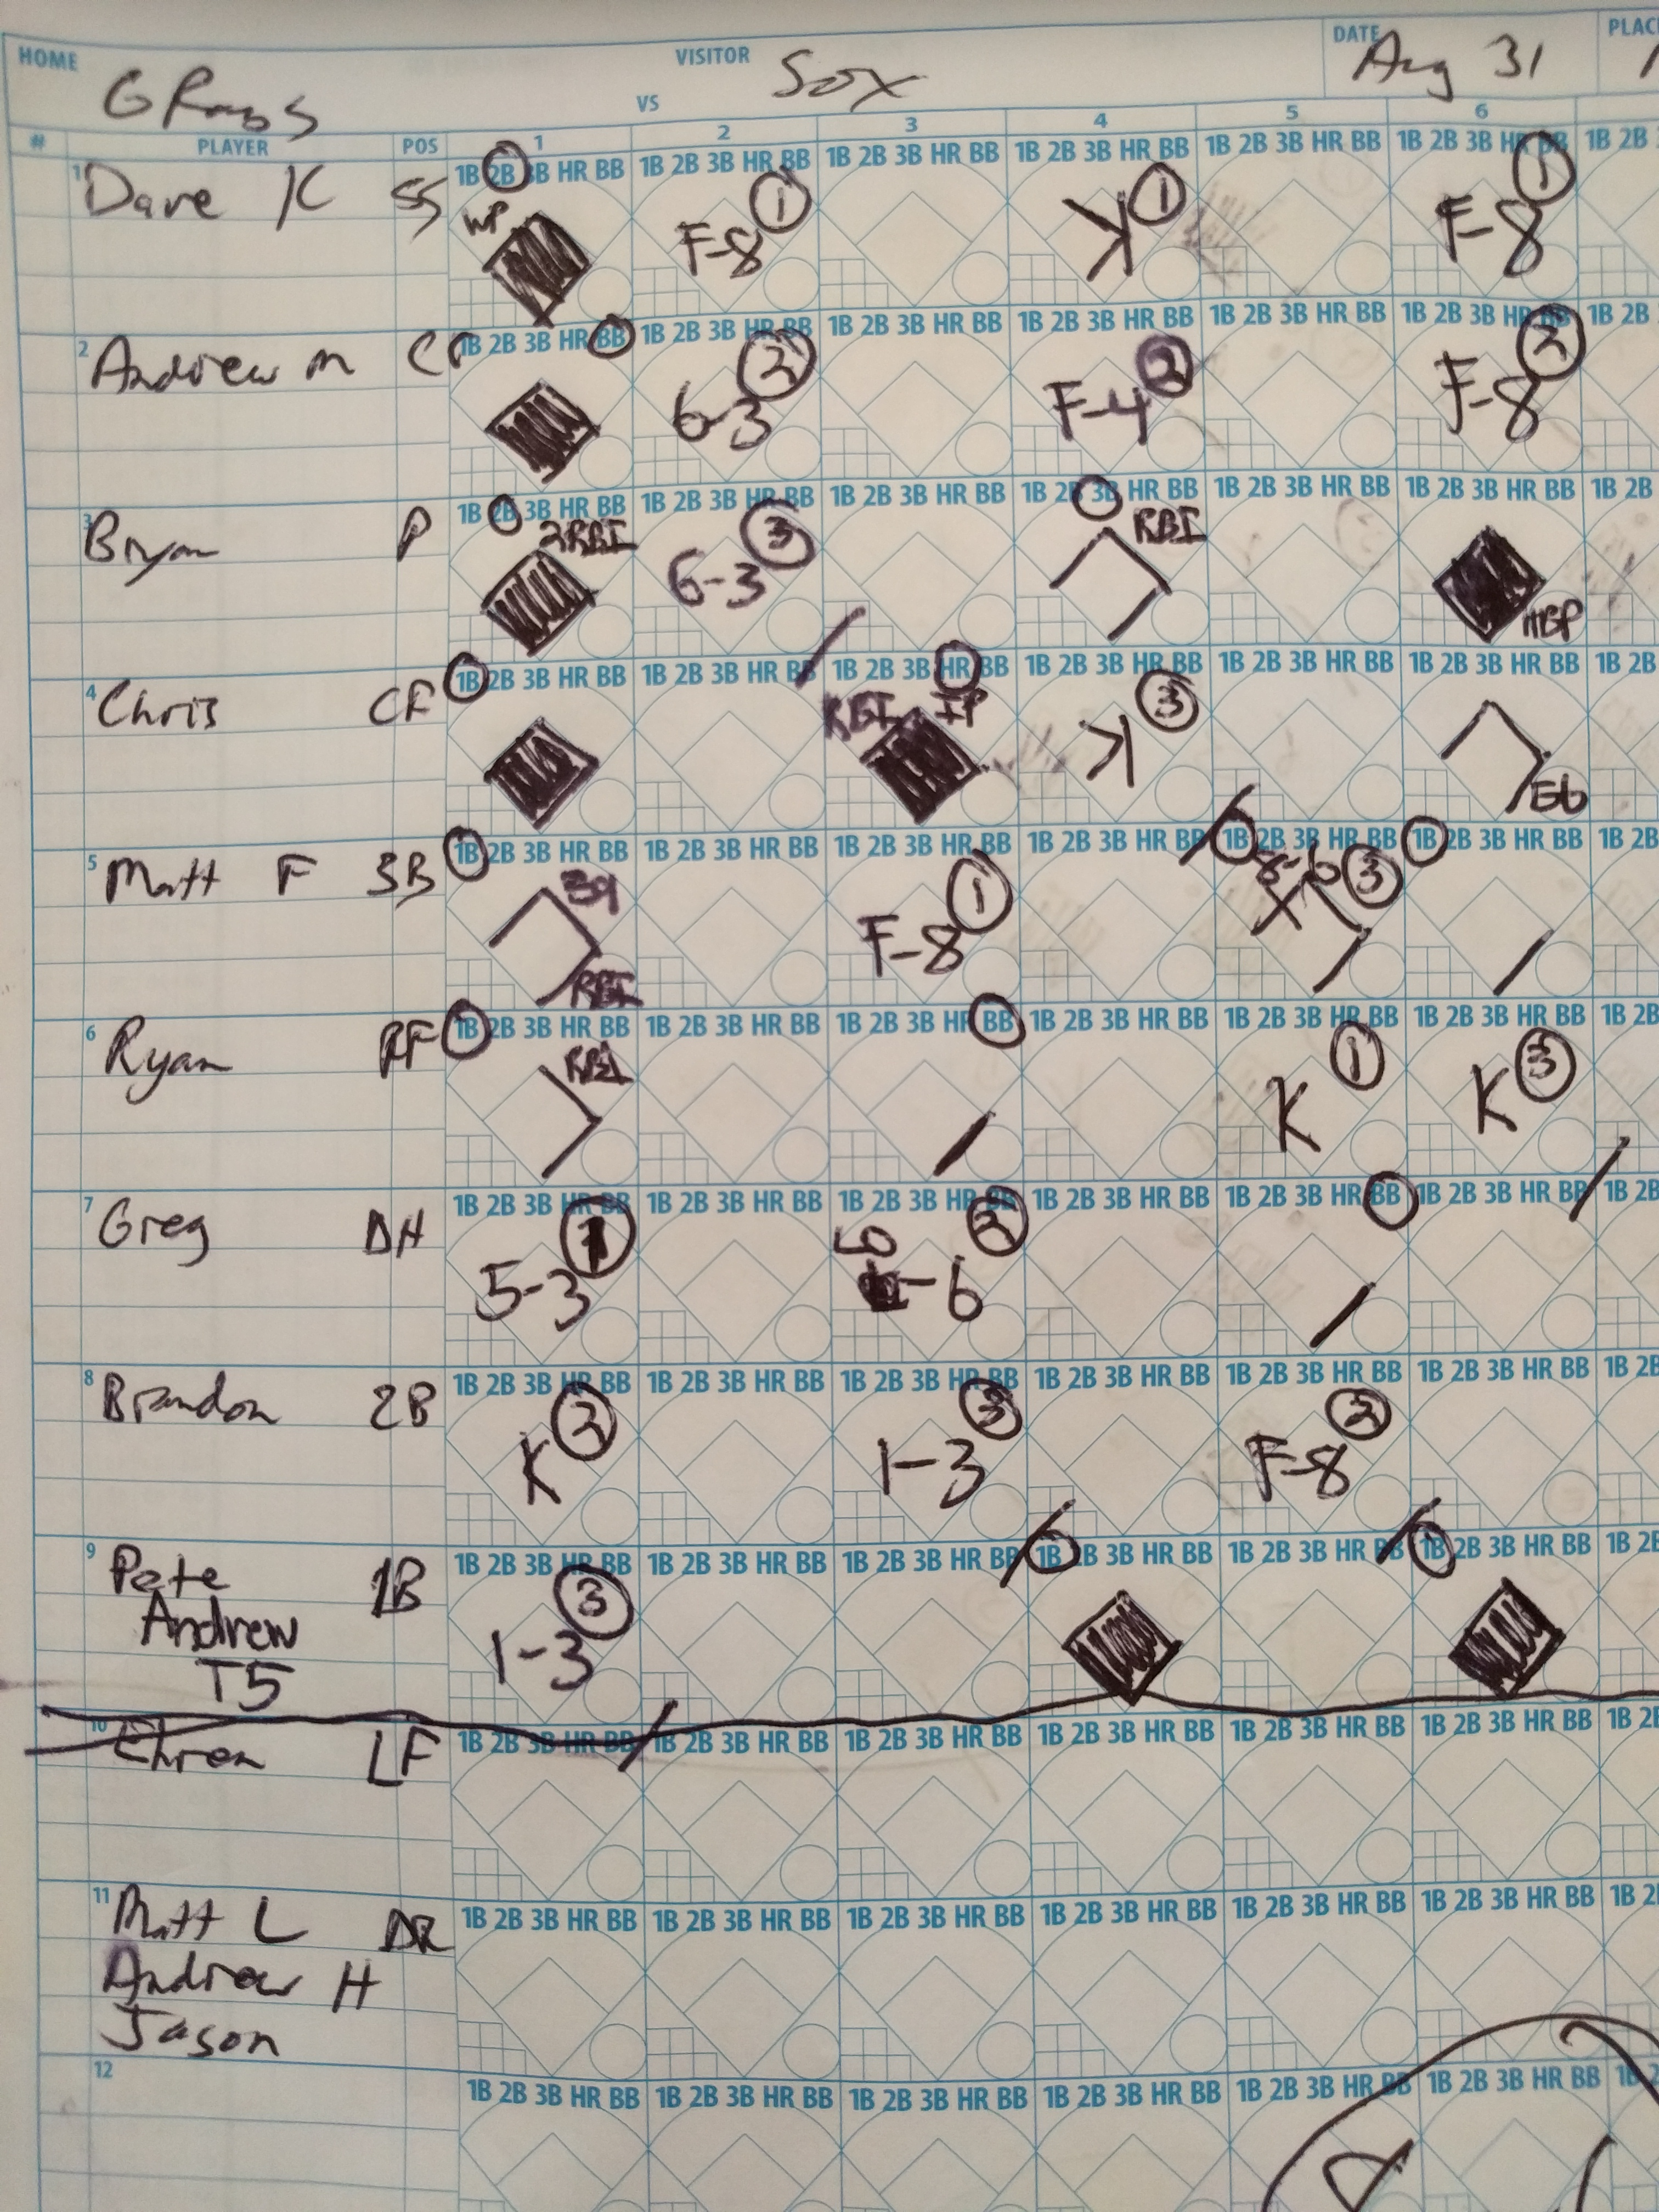 HOME VISITOR DATE PLAC
GRays VS Sox Aug 31
# PLAYER POS 1 2 3 4 5 6
1B 2B 3B HR BB 1B 2B 3B HR BB 1B 2B 3B HR BB 1B 2B 3B HR BB 1B 2B 3B HR BB 1B 2B 3B HR BB 1B 2B
1 Dave K SS WP F-8 1 K 1 F-8 1
1B 2B 3B HR BB 1B 2B 3B HR BB 1B 2B 3B HR BB 1B 2B 3B HR BB 1B 2B 3B HR BB 1B 2B 3B HR BB 1B 2B
2 Andrew M 6-3 2 F-4 2 F-8 2
1B 2B 3B HR BB 1B 2B 3B HR BB 1B 2B 3B HR BB 1B 2B 3B HR BB 1B 2B 3B HR BB 1B 2B 3B HR BB 1B 2B
3 Bryan P 2RBI 6-3 3 RBI HBP
1B 2B 3B HR BB 1B 2B 3B HR BB 1B 2B 3B HR BB 1B 2B 3B HR BB 1B 2B 3B HR BB 1B 2B 3B HR BB 1B 2B
4 Chris CF RBI IP K 3 E6
1B 2B 3B HR BB 1B 2B 3B HR BB 1B 2B 3B HR BB 1B 2B 3B HR BB 1B 2B 3B HR BB 1B 2B 3B HR BB 1B 2B
5 Matt F 3B RBI F-8 1 8-6 3
1B 2B 3B HR BB 1B 2B 3B HR BB 1B 2B 3B HR BB 1B 2B 3B HR BB 1B 2B 3B HR BB 1B 2B 3B HR BB 1B 2B
6 Ryan RF RBI K 1 K 3
1B 2B 3B HR BB 1B 2B 3B HR BB 1B 2B 3B HR BB 1B 2B 3B HR BB 1B 2B 3B HR BB 1B 2B 3B HR BB 1B 2B
7 Greg DH 5-3 1 LO -6 2
1B 2B 3B HR BB 1B 2B 3B HR BB 1B 2B 3B HR BB 1B 2B 3B HR BB 1B 2B 3B HR BB 1B 2B 3B HR BB 1B 2B
8 Brandon 2B K 2 1-3 3 F-8 2
1B 2B 3B HR BB 1B 2B 3B HR BB 1B 2B 3B HR BB 1B 2B 3B HR BB 1B 2B 3B HR BB 1B 2B 3B HR BB 1B 2B
9 Pete 1B 1-3 3
Andrew
T5
1B 2B 3B HR BB 1B 2B 3B HR BB 1B 2B 3B HR BB 1B 2B 3B HR BB 1B 2B 3B HR BB 1B 2B 3B HR BB 1B 2B
10 Ehren LF
1B 2B 3B HR BB 1B 2B 3B HR BB 1B 2B 3B HR BB 1B 2B 3B HR BB 1B 2B 3B HR BB 1B 2B 3B HR BB 1B 2B
11 Matt L
Andrew H
Jason
12
1B 2B 3B HR BB 1B 2B 3B HR BB 1B 2B 3B HR BB 1B 2B 3B HR BB 1B 2B 3B HR BB 1B 2B 3B HR BB 1B 2B